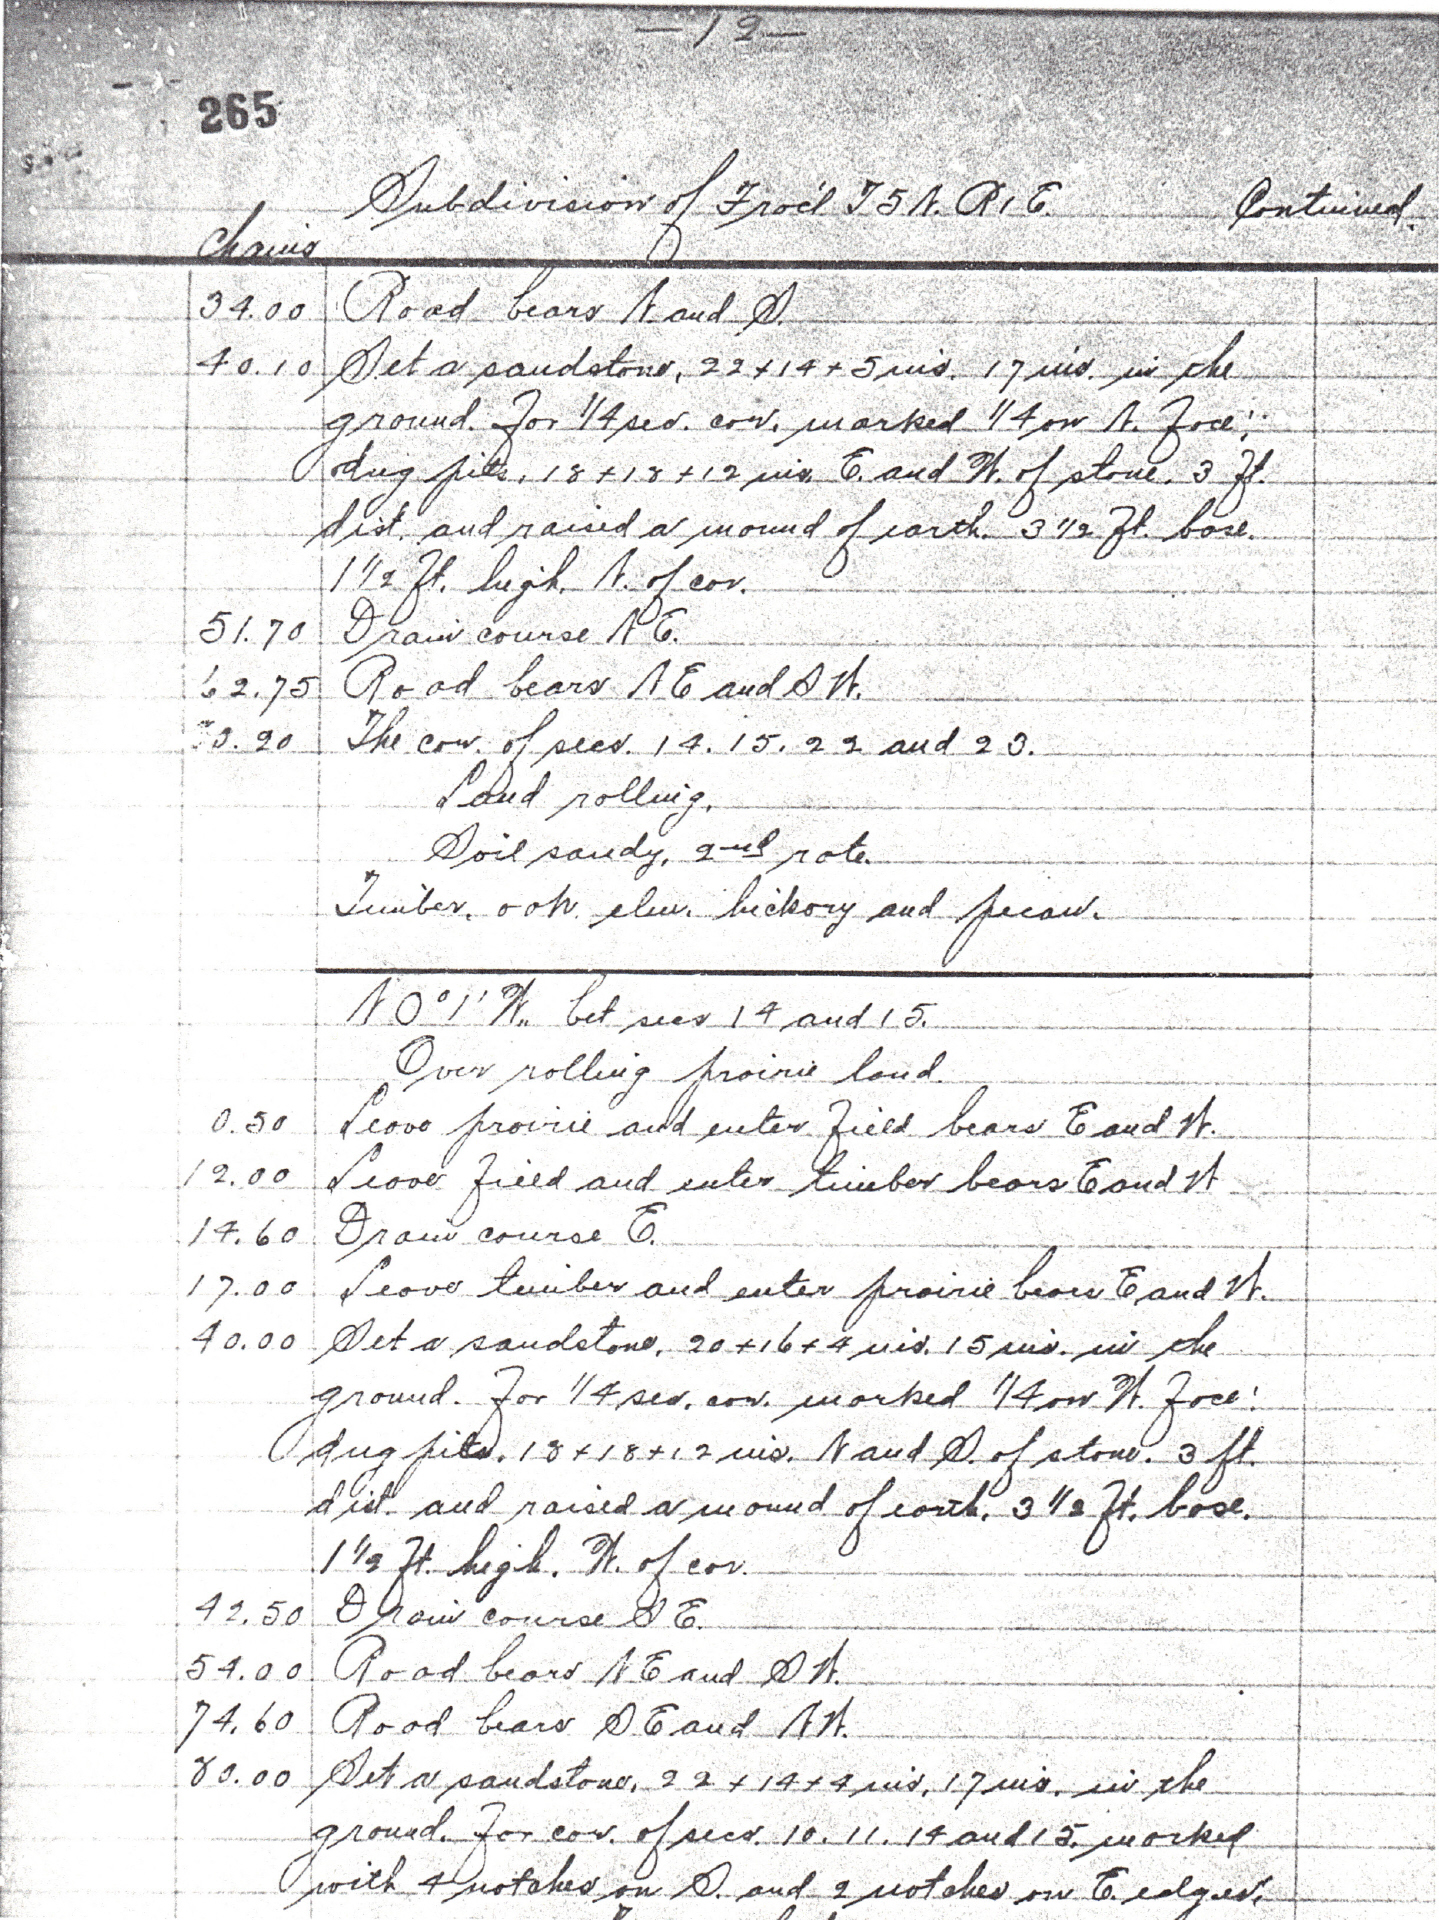 — 12 —
265
Subdivision of Frac'l T5N. R1E. Continued.
Chains
34.00 Road bears N. and S.
40.10 Set a sandstone, 22 + 14 + 5 ins. 17 ins. in the
ground. for 1/4 sec. cor. marked 1/4 on N. face;
dug pits, 18 + 18 + 12 ins. E. and W. of stone. 3 ft.
dist. and raised a mound of earth. 3 1/2 ft. base.
1 1/2 ft. high. N. of cor.
51.70 Drain course NE.
62.75 Road bears NE and SW.
.20 The cor. of secs. 14. 15. 22 and 23.
Land rolling.
Soil sandy, 2nd rate.
Timber, oak, elm. hickory and pecan.
N 0° 1' W., bet secs 14 and 15.
Over rolling prairie land.
0.50 Leave prairie and enter field bears E and W.
12.00 Leave field and enter timber bears E and W
14.60 Drain course E.
17.00 Leave timber and enter prairie bears E and W.
40.00 Set a sandstone, 20 + 16 + 4 ins. 15 ins. in the
ground. for 1/4 sec. cor. marked 1/4 on W. face;
dug pits, 18 + 18 + 12 ins. N and S. of stone. 3 ft.
dist. and raised a mound of earth. 3 1/2 ft. base.
1 1/2 ft. high. W. of cor.
42.50 Drain course SE.
54.00 Road bears NE and SW.
74.60 Road bears SE and NW.
80.00 Set a sandstone, 22 + 14 + 4 ins, 17 ins. in the
ground. for cor. of secs. 10. 11. 14 and 15. marked
with 4 notches on S. and 2 notches on E. edges,